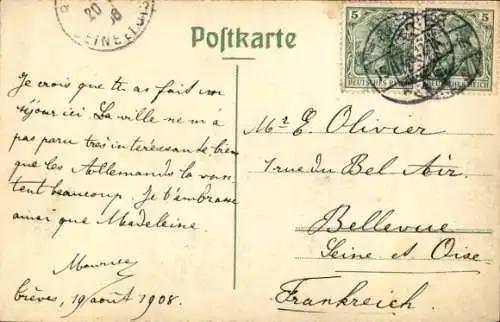 Postkarte
20
SEINE ET OISE
5
5
DEUTSCHES REICH
Je crois que tu as fait un
séjour ici. La ville ne m'a
pas paru très intéressante, bien
que les Allemands la van-
tent beaucoup. Je t'embrasse
ainsi que Madeleine.
Maurice
Trèves, 19 août 1908.
Mr E. Olivier
rue du Bel Air
Bellevue
Seine et Oise
Frankreich.